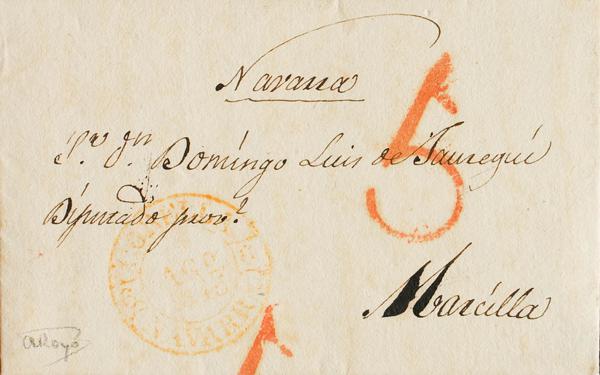 Navarra
5
S.or Dn Domíngo Luis de Jauregui
Diputado prov.l
Marcilla
NAVARRA
aRoyo